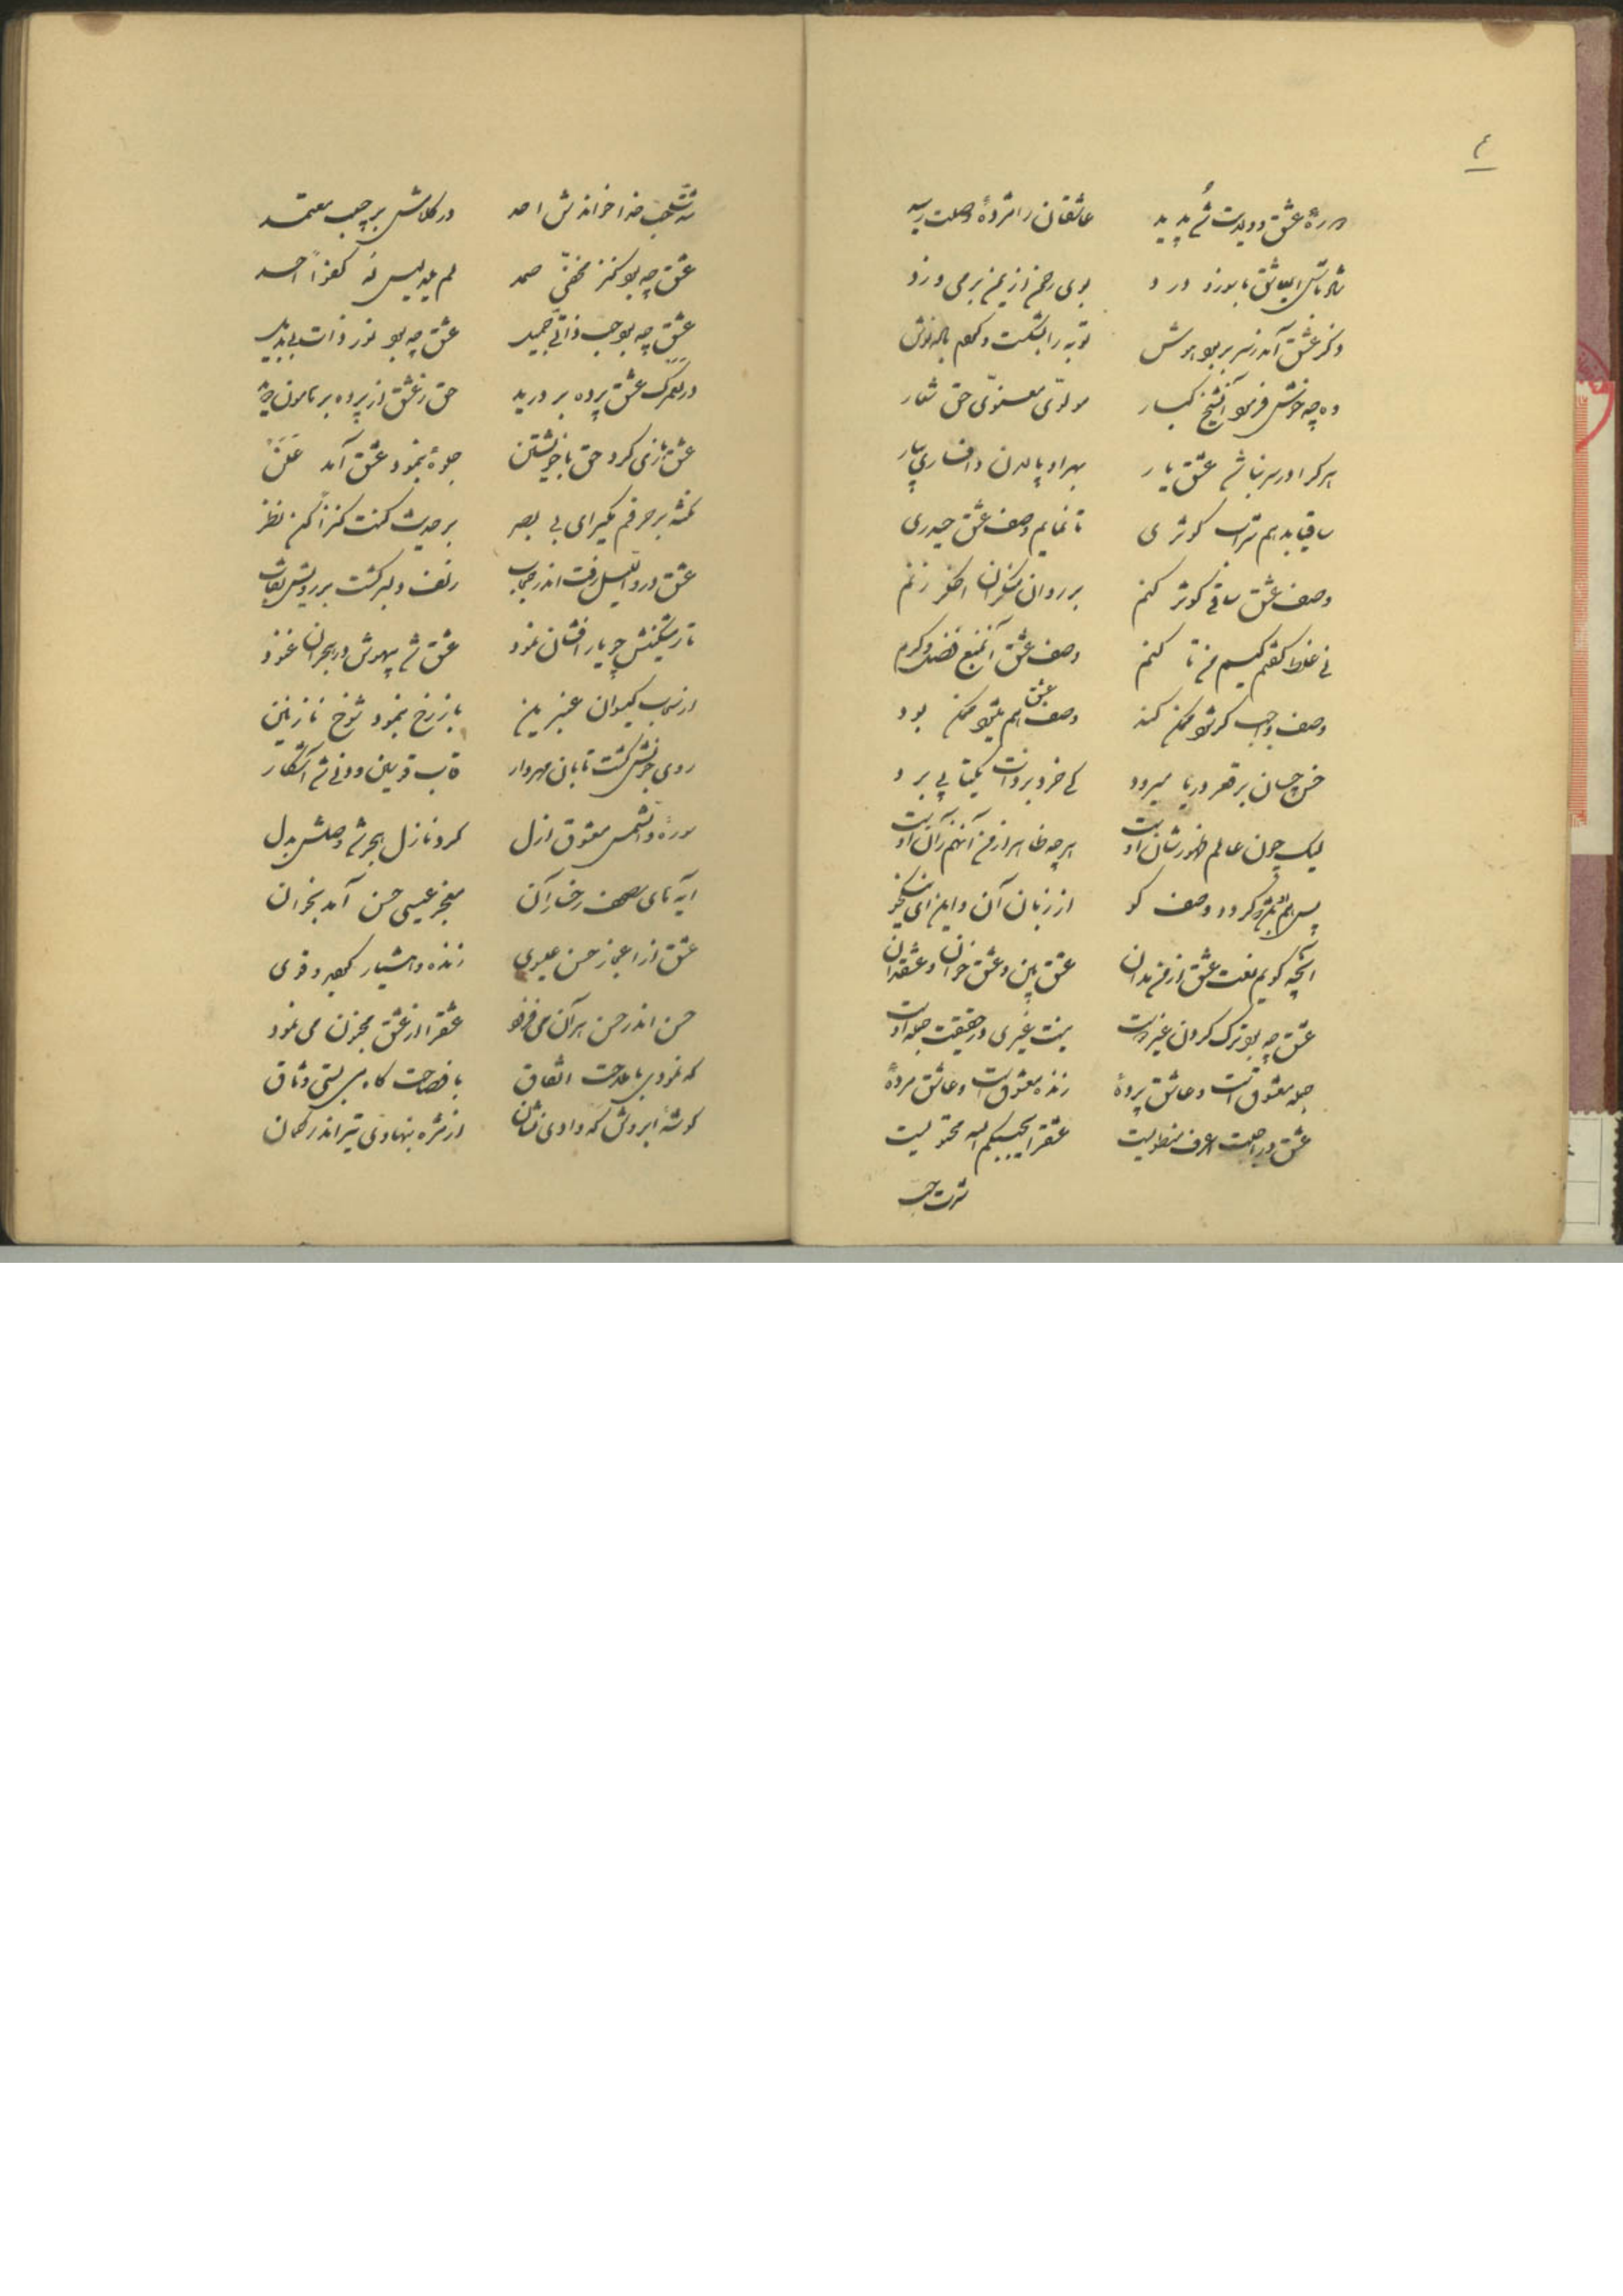 ۴
عشق و ویدت شد پدید عاشقان را مژدهٔ وصلت رسید
درد بوی رحمن از یمن بر می وزد
ذکر عشق آمد ز سر بربود هوش توبه را بشکست و کفتم باده نوش
وه چه خوش فرمود آن شیخ کبار مولوی معنوی حق شعار
هر کرا در سر نباشد عشق یار بهر او پالان و افساری بیار
ساقیا بدهم شراب کوثری تا نمایم وصف عشق حیدری
وصف عشق ساقی کوثر کنم بر روان منکران اخکر زنم
نی غلط کفتم کیم من تا کنم وصف عشق آن منبع فضل و کرم
وصف واجب کی تواند ممکن کند وصف عشق هم ممکن بود
خس چسان بر قعر دریا میرود کی خرد بر ذات یکتا پی برد
لیک چون عالم ظهور شان اوست هر چه ظاهر از من آنهم زان اوست
پس کرد وصف کو از زبان آن و این ای نیکخو
آنچه کویم نعت عشق از من مدان عشق بین و عشق خوان و عشق دان
عشق چه بود ترک کردن غیر دوست نیست غیری در حقیقت جمله اوست
جمله معشوق است و عاشق پردهٔ زنده معشوق است و عاشق مردهٔ
عشق در احببت اعرف منطویست عشق را یحببکم الله محتویست
شربت حب
خدا خواندش احد در کلامش بر حبیب معتمد
عشق چه بود کنز مخفی صمد لم یلد لیس له کفوا احد
عشق چه بود حب ذاتی حمید عشق چه بود نور ذات بی ندید
در لعمرک عشق پرده بر درید حق ز عشق از پرده بر نامون
عشق بازی کرد حق با خویشتن جلوهٔ بنمود عشق آمد علن
نکته بر حرفم مکیر ای بی بصر بر حدیث کنت کنزا کن نظر
عشق در واللیل رفت اندر حجاب زلف دلبر کشت بر رویش نقاب
تار مشکینش چو یار افشان نمود عشق شد بیهوش و در هجران غنود
از نقاب کیسوان عنبرین باز رخ بنمود شوخ نازنین
روی خوبش کشت تابان مهروار قاب قوسین دنی شد آشکار
سورهٔ والشمس معشوق ازل کرد نازل هجر شد وصلش بدل
آیه های مصحف رخسار آن معجز عیسی حسن آمد بخوان
عشق از اعجاز حسن عیسوی زنده و هشیار کوید و قوی
حسن اندر حسن هر آن می فزود عشق را از عشق مجنون می نمود
که نمودی با ملاحت اتفاق با فصاحت کاه می بستی وثاق
کوشهٔ ابروش که دادی نشان از مژه بنهادی تیر اندر کمان